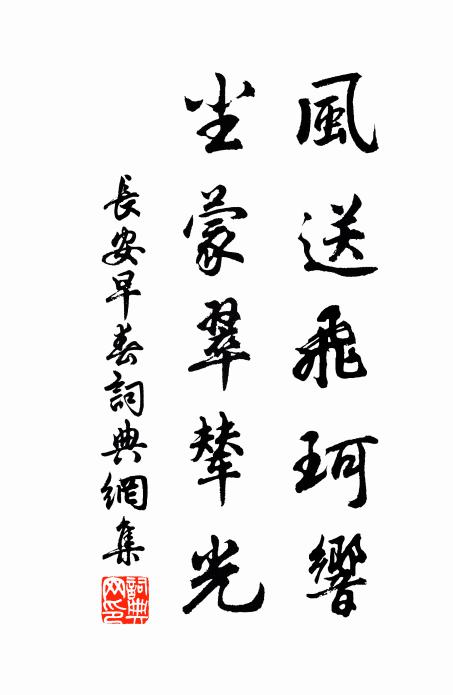 風送飛珂響
尘蒙翠輦光
長安早春詞典網集
詞典
网印